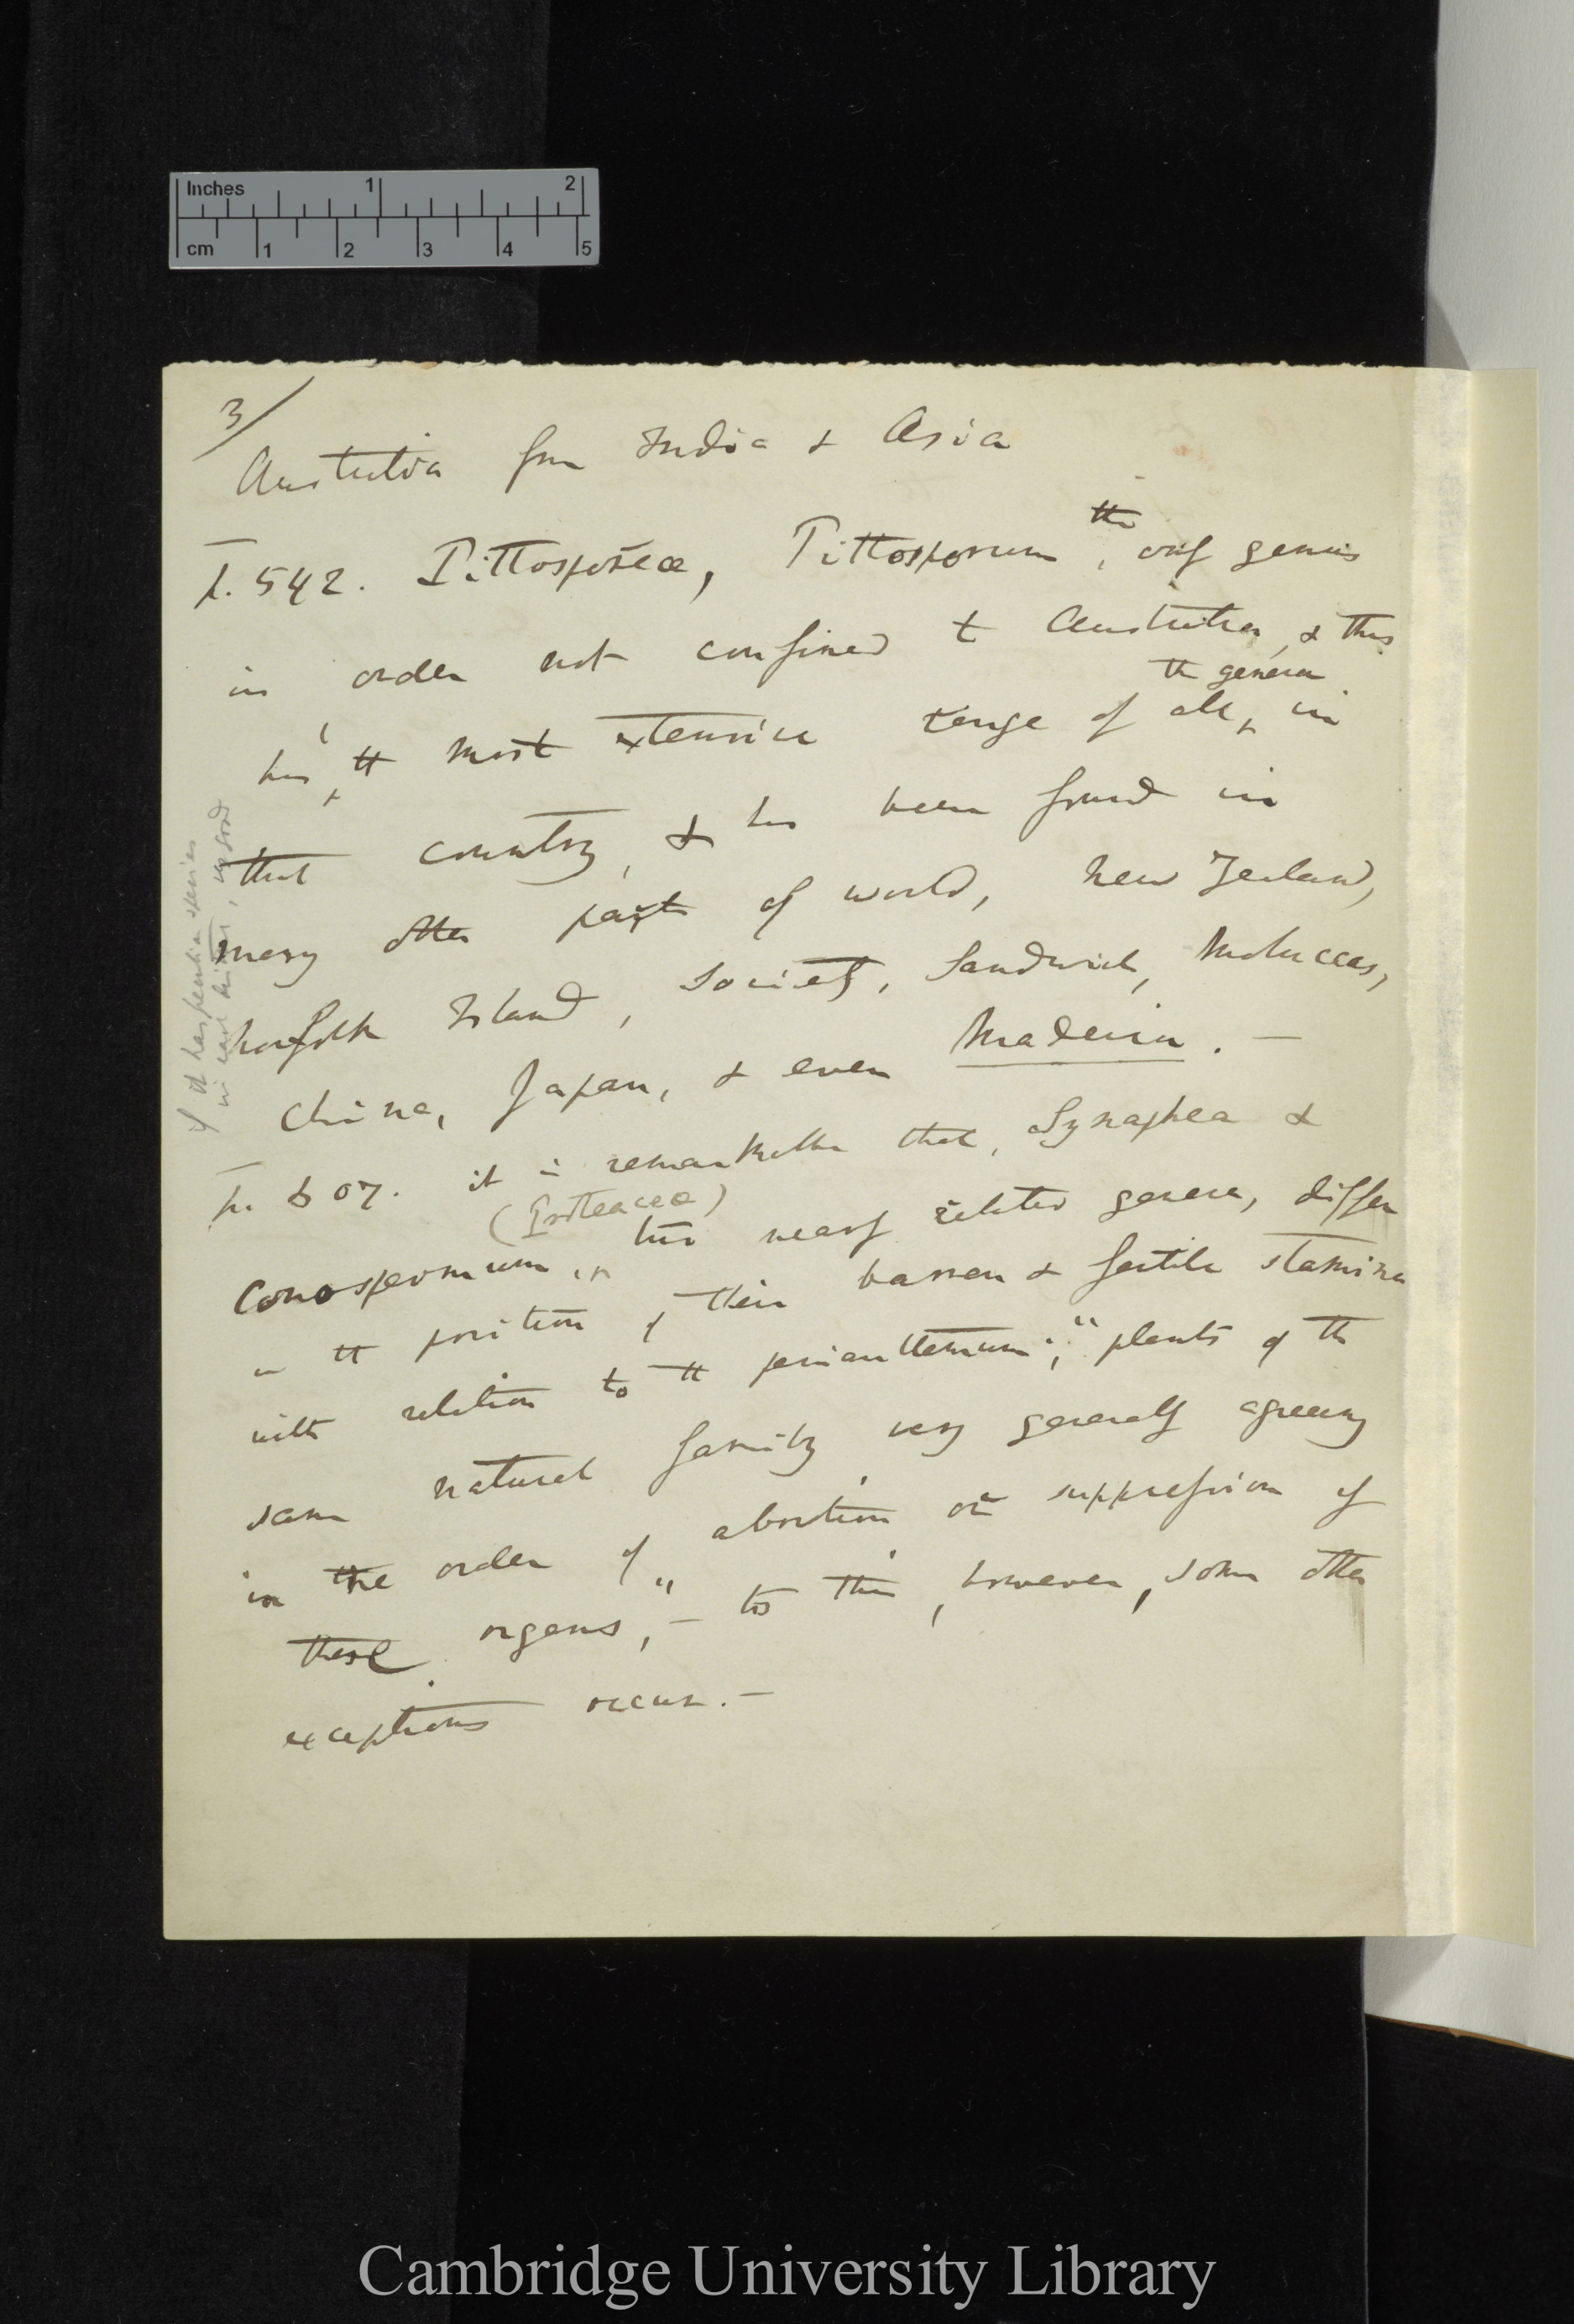 Inches 1 2
cm 1 2 3 4 5
3/
Australia from India & Asia
p. 542. Pittosporeæ, Pittosporum, the only genus
in order not confined to Australia, & this
the genera
has, the most extensive range of all, in
that country, & has been found in
many other parts of world, New Zealand,
Norfolk Island, Society, Sandwich, Moluccas,
China, Japan, & even Madeira. —
if it has peculiar species
in each
p. 607. it is remarkable that, Synaphea &
(Proteaceæ)
Conospermum, two nearly related genera, differ
in the position of their barren & fertile stamina
with relation to the perianthemum; "plants of the
same natural family very generally agreeing
in the order of abortion or suppression of
these organs," — to this, however, some other
exceptions occur. —
Cambridge University Library